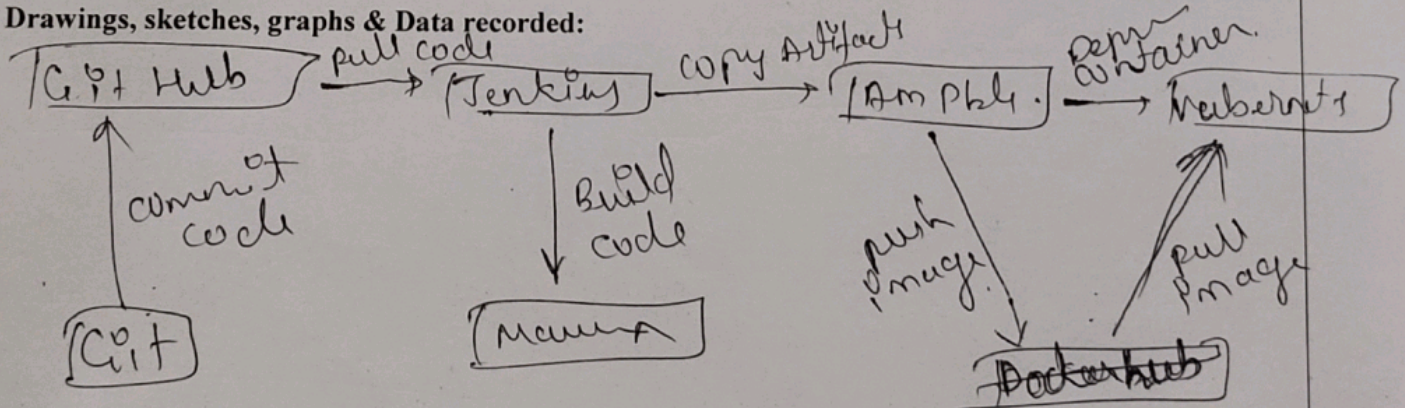 Drawings, sketches, graphs & Data recorded:
Git Hub
pull code
Jenkins
copy Artifact
container
commit
code
Build
code
push
image
pull
image
Git
Dockerhub